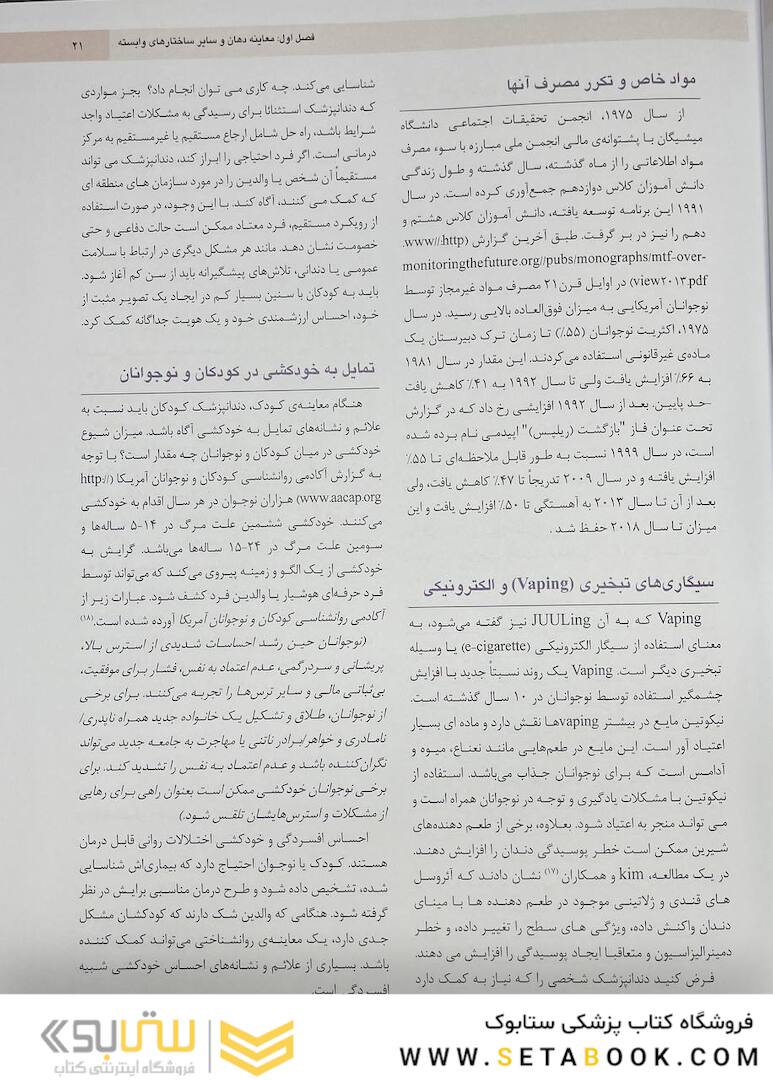 فصل اول: معاینه دهان و سایر ساختارهای وابسته
۲۱
مواد خاص و تکرر مصرف آنها
از سال ۱۹۷۵، انجمن تحقیقات اجتماعی دانشگاه
میشیگان با پشتوانه‌ی مالی انجمن ملی مبارزه با سوء مصرف
مواد اطلاعاتی را از ماه گذشته، سال گذشته و طول زندگی
دانش آموزان کلاس دوازدهم جمع‌آوری کرده است. در سال
۱۹۹۱ این برنامه توسعه یافته، دانش آموزان کلاس هشتم و
دهم را نیز در بر گرفت. طبق آخرین گزارش (http://www.
monitoringthefuture.org//pubs/monographs/mtf-over-
view۲۰۱۳.pdf) در اوایل قرن ۲۱ مصرف مواد غیرمجاز توسط
نوجوانان آمریکایی به میزان فوق‌العاده بالایی رسید. در سال
۱۹۷۵، اکثریت نوجوانان (۵۵٪) تا زمان ترک دبیرستان یک
ماده‌ی غیرقانونی استفاده می‌کردند. این مقدار در سال ۱۹۸۱
به ۶۶٪ افزایش یافت ولی تا سال ۱۹۹۲ به ۴۱٪ کاهش یافت
-حد پایین. بعد از سال ۱۹۹۲ افزایشی رخ داد که در گزارش
تحت عنوان فاز "بازگشت (ریلپس)" اپیدمی نام برده شده
است، در سال ۱۹۹۹ نسبت به طور قابل ملاحظه‌ای تا ۵۵٪
افزایش یافته و در سال ۲۰۰۹ تدریجاً تا ۴۷٪ کاهش یافت، ولی
بعد از آن تا سال ۲۰۱۳ به آهستگی تا ۵۰٪ افزایش یافت و این
میزان تا سال ۲۰۱۸ حفظ شد .
سیگاری‌های تبخیری (Vaping) و الکترونیکی
Vaping که به آن JUULing نیز گفته می‌شود، به
معنای استفاده از سیگار الکترونیکی (e-cigarette) یا وسیله
تبخیری دیگر است. Vaping یک روند نسبتاً جدید با افزایش
چشمگیر استفاده توسط نوجوانان در ۱۰ سال گذشته است.
نیکوتین مایع در بیشتر vapingها نقش دارد و ماده ای بسیار
اعتیاد آور است. این مایع در طعم‌هایی مانند نعناع، میوه و
آدامس است که برای نوجوانان جذاب می‌باشد. استفاده از
نیکوتین با مشکلات یادگیری و توجه در نوجوانان همراه است و
می تواند منجر به اعتیاد شود. بعلاوه، برخی از طعم دهنده‌های
شیرین ممکن است خطر پوسیدگی دندان را افزایش دهند.
در یک مطالعه، kim و همکاران (۱۷) نشان دادند که آئروسل
های قندی و ژلاتینی موجود در طعم دهنده ها با مینای
دندان واکنش داده، ویژگی های سطح را تغییر داده، و خطر
دمینرالیزاسیون و متعاقبا ایجاد پوسیدگی را افزایش می دهند.
فرض کنید دندانپزشک شخصی را که نیاز به کمک دارد
شناسایی می‌کند. چه کاری می توان انجام داد؟ بجز مواردی
که دندانپزشک استثنائا برای رسیدگی به مشکلات اعتیاد واجد
شرایط باشد، راه حل شامل ارجاع مستقیم یا غیرمستقیم به مرکز
درمانی است. اگر فرد احتیاجی را ابراز کند، دندانپزشک می تواند
مستقیماً آن شخص یا والدین را در مورد سازمان های منطقه ای
که کمک می کنند، آگاه کند. با این وجود، در صورت استفاده
از رویکرد مستقیم، فرد معتاد ممکن است حالت دفاعی و حتی
خصومت نشان دهد. مانند هر مشکل دیگری در ارتباط با سلامت
عمومی یا دندانی، تلاش‌های پیشگیرانه باید از سن کم آغاز شود.
باید به کودکان با سنین بسیار کم در ایجاد یک تصویر مثبت از
خود، احساس ارزشمندی خود و یک هویت جداگانه کمک کرد.
تمایل به خودکشی در کودکان و نوجوانان
هنگام معاینه‌ی کودک، دندانپزشک کودکان باید نسبت به
علائم و نشانه‌های تمایل به خودکشی آگاه باشد. میزان شیوع
خودکشی در میان کودکان و نوجوانان چه مقدار است؟ با توجه
به گزارش آکادمی روانشناسی کودکان و نوجوانان آمریکا (http://
www.aacap.org) هزاران نوجوان در هر سال اقدام به خودکشی
می‌کنند. خودکشی ششمین علت مرگ در ۱۴-۵ ساله‌ها و
سومین علت مرگ در ۲۴-۱۵ ساله‌ها می‌باشد. گرایش به
خودکشی از یک الگو و زمینه پیروی می‌کند که می‌تواند توسط
فرد حرفه‌ای هوشیار یا والدین فرد کشف شود. عبارات زیر از
آکادمی روانشناسی کودکان و نوجوانان آمریکا آورده شده است.(۱۸)
(نوجوانان حین رشد احساسات شدیدی از استرس بالا،
پریشانی و سردرگمی، عدم اعتماد به نفس، فشار برای موفقیت،
بی‌ثباتی مالی و سایر ترس‌ها را تجربه می‌کنند. برای برخی
از نوجوانان، طلاق و تشکیل یک خانواده جدید همراه ناپدری/
نامادری و خواهر/برادر ناتنی یا مهاجرت به جامعه جدید می‌تواند
نگران‌کننده باشد و عدم اعتماد به نفس را تشدید کند. برای
برخی نوجوانان خودکشی ممکن است بعنوان راهی برای رهایی
از مشکلات و استرس‌هایشان تلقی شود.)
احساس افسردگی و خودکشی اختلالات روانی قابل درمان
هستند. کودک یا نوجوان احتیاج دارد که بیماری‌اش شناسایی
شده، تشخیص داده شود و طرح درمان مناسبی برایش در نظر
گرفته شود. هنگامی که والدین شک دارند که کودکشان مشکل
جدی دارد، یک معاینه‌ی روانشناختی می‌تواند کمک کننده
باشد. بسیاری از علائم و نشانه‌های احساس خودکشی شبیه
افسردگی است.
فروشگاه کتاب پزشکی ستابوک
WWW.SETABOOK.COM
ستابوک
فروشگاه اینترنتی کتاب